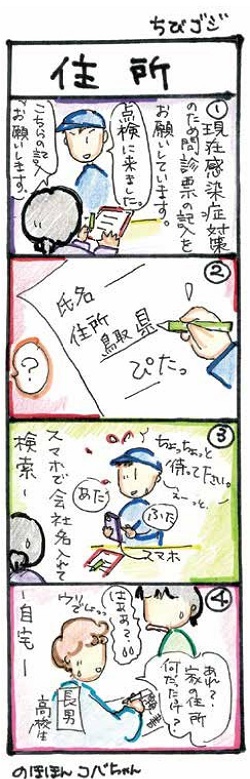 ちびゴジ
住所
①
現在感染症対策
のため問診票の記入を
お願いしています。
点検に来ました。
こちらの記入
お願いします。
②
氏名
住所
鳥取県
ぴたっ
?
③
ちょっちょっと
待ってください。
えーっと、
あた
ふた
スマホ
スマホで会社名入れて
検索ー
④
あれ?
家の住所
何だったけ?
ー自宅ー
長男
高校生
のほほんコバちゃん